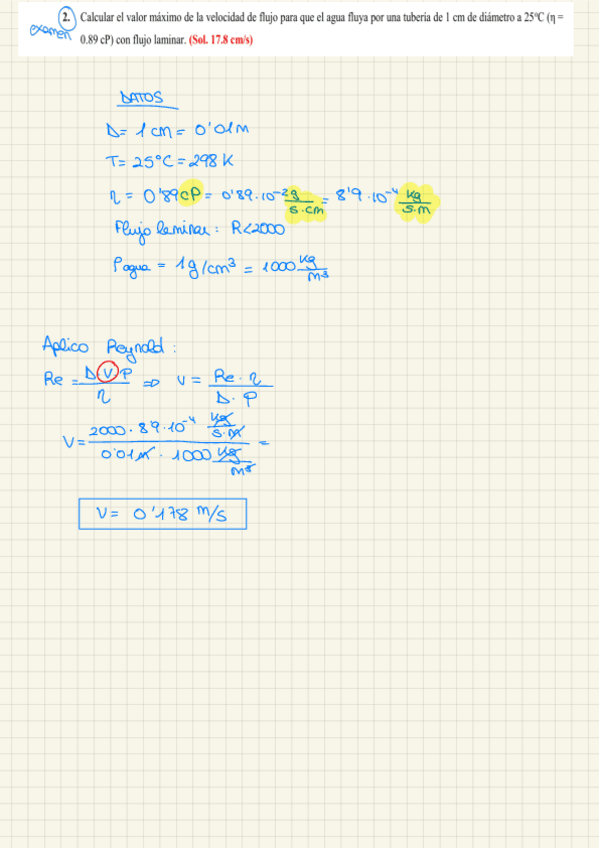 2. Calcular el valor máximo de la velocidad de flujo para que el agua fluya por una tubería de 1 cm de diámetro a 25ºC (η =
examen
0.89 cP) con flujo laminar. (Sol. 17.8 cm/s)
DATOS
D= 1cm = 0'01m
T= 25°C = 298 K
η = 0'89cP = 0'89·10⁻² g/s·cm = 8'9·10⁻⁴ kg/s·m
Flujo laminar: R<2000
ρagua = 1g/cm³ = 1000 kg/m³
Aplico Reynold:
Re = D·V·ρ/η ⇒ V = Re·η/D·ρ
V = 2000·8'9·10⁻⁴ kg/s·m / 0'01m · 1000 kg/m³ =
V = 0'178 m/s